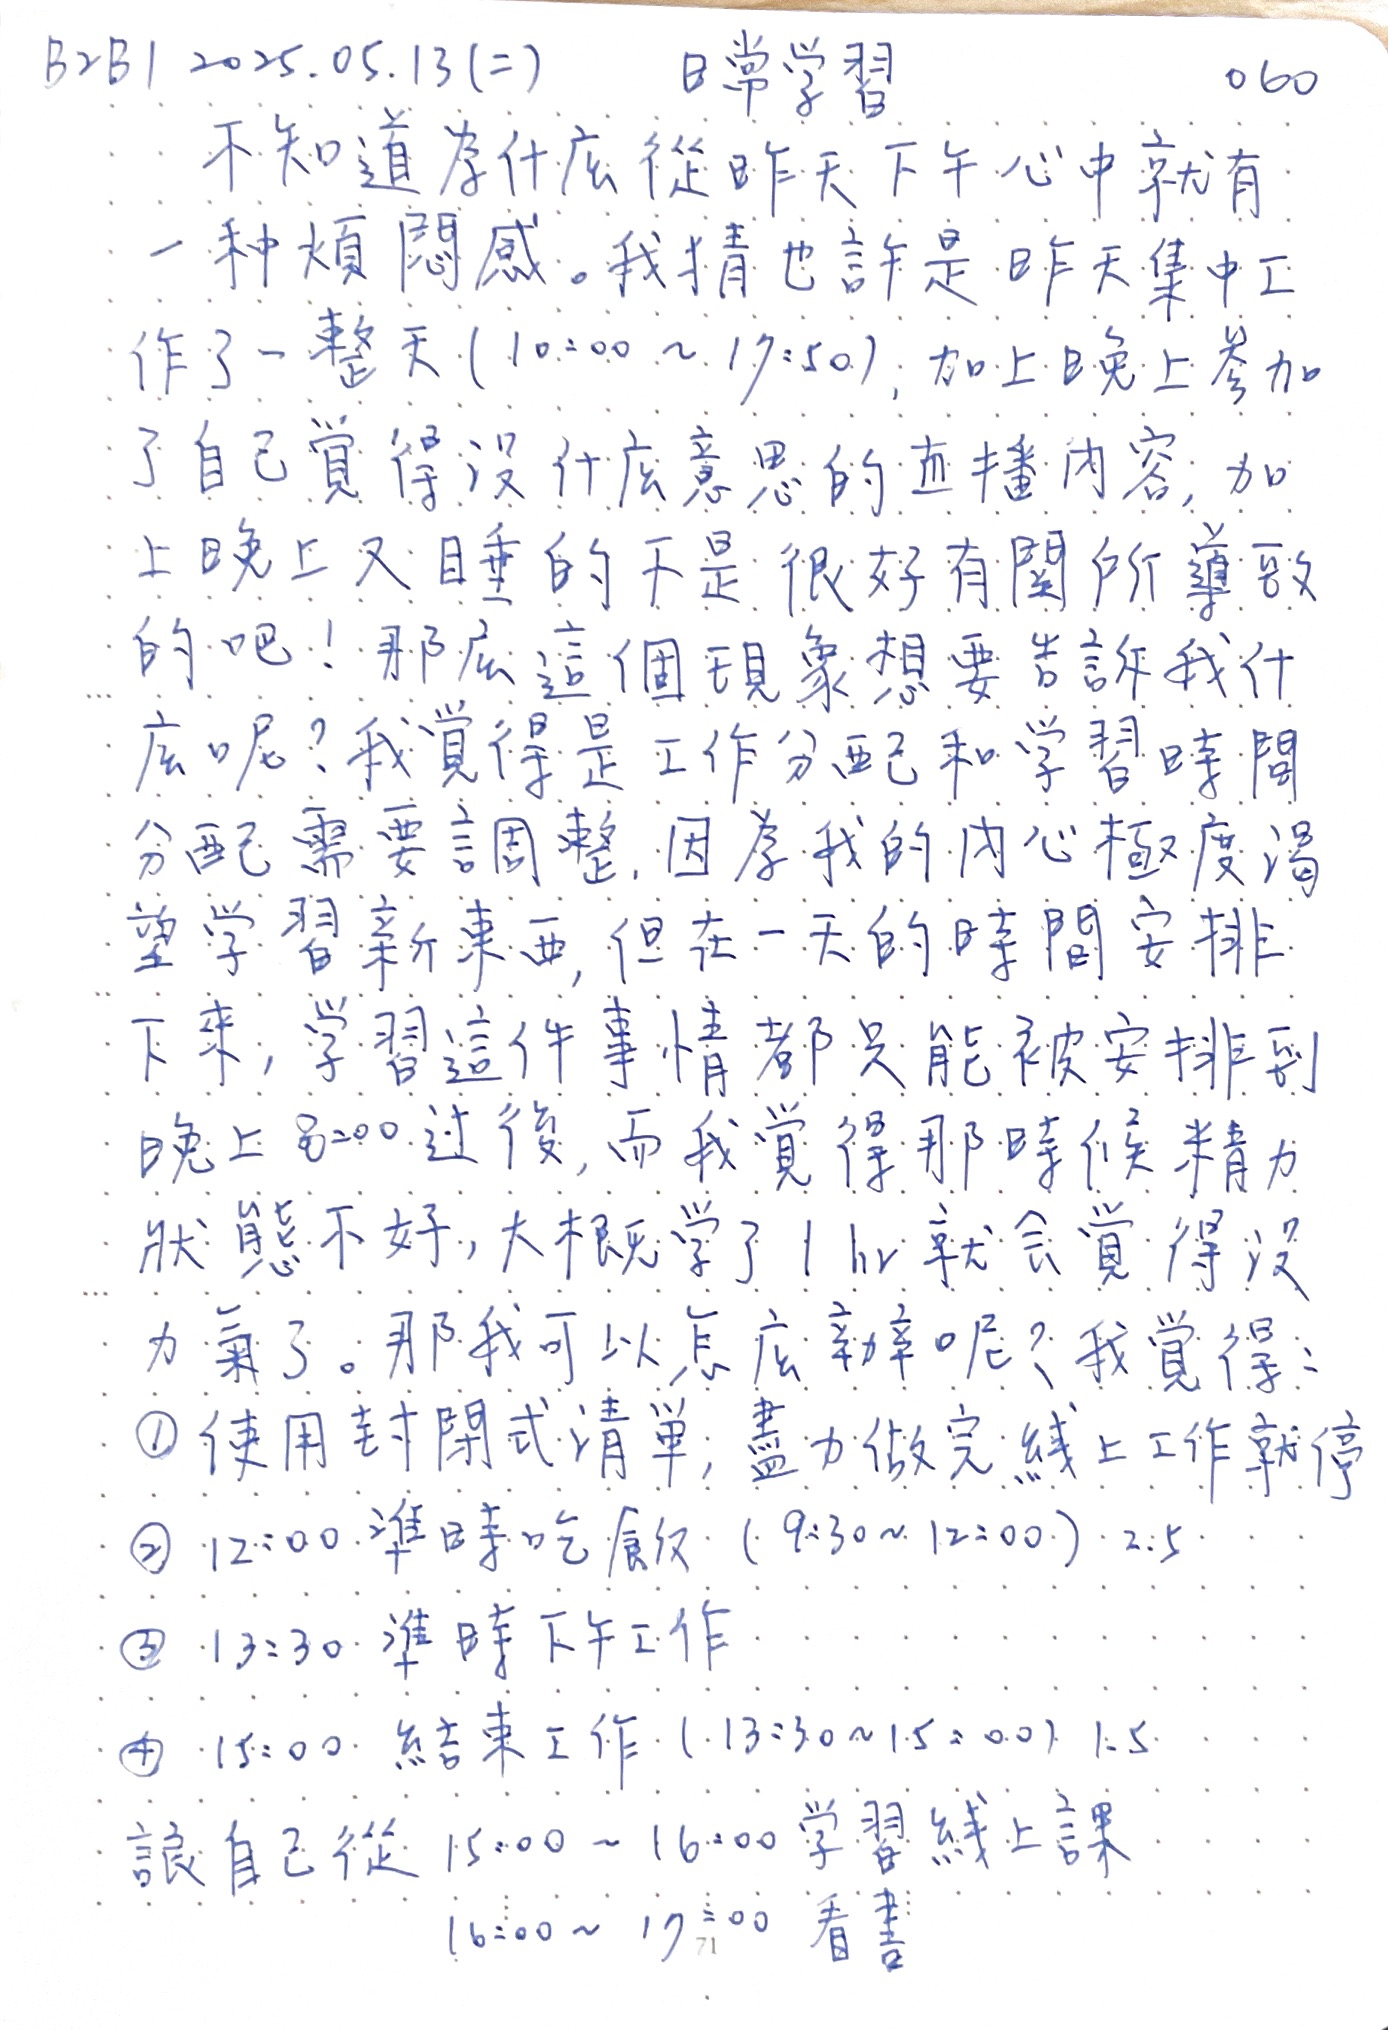 B2B1 2025.05.13(二) 日常学習 060
不知道為什庅從昨天下午心中就有
一种煩悶感。我猜也許是昨天集中工
作了一整天(10:00~17:50),加上晚上參加
了自己覚得没什庅意思的直播内容,加
上晚上又睡的不是很好有関所導致
的吧!那庅這個現象想要告訴我什
庅呢?我覚得是工作分配和学習時間
分配需要調整.因為我的内心極度渴
望学習新東西,但在一天的時間安排
下來,学習這件事情都只能被安排到
晚上8:00过後,而我覚得那時候精力
狀態不好,大概学了1hr就会覚得没
力氣了。那我可以怎庅辦呢?我覚得:
①使用封閉式清単,盡力做完綫上工作就停
②12:00準時吃飯(9:30~12:00)2.5
③13:30準時下午工作
④15:00結束工作(13:30~15:00)1.5
讓自己從15:00~16:00学習綫上課
16:00~17:00看書
71